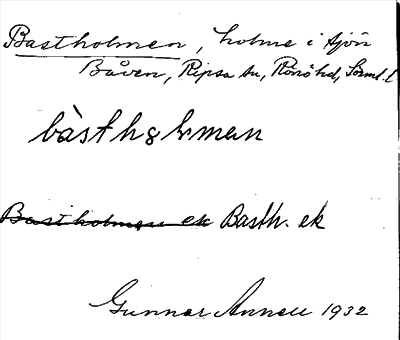 Bastholmen, holme i sjön
Båven, Ripsa sn, Rönö hd, Sörml. l
bàsth
Bastholmen ek Basth. ek
Gunnar Annell 1932